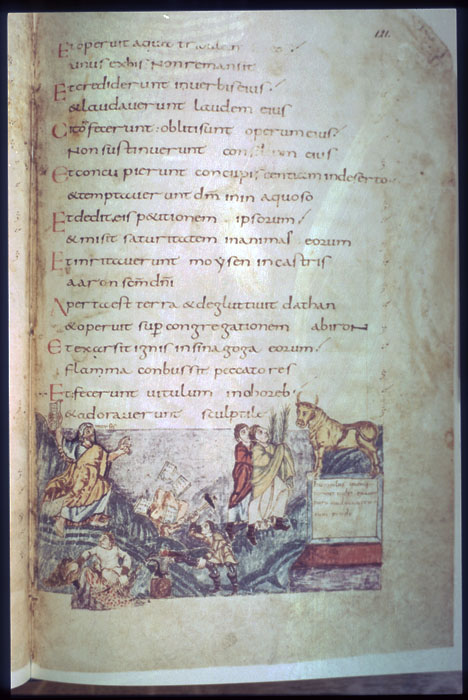 121.
Et operuit aqua
unus ex his Non remansit
Et crediderunt in verbis eius:
& laudaverunt laudem eius
Cito fecerunt: obliti sunt operum eius:
Non sustinuerunt consilium eius
Et concupierunt concupiscentiam in deserto
& temptaverunt dm in inaquoso
Et dedit eis petitionem ipsorum:
& misit saturitatem in animas eorum
Et inritaverunt moysen in castris
aaron scm dni
Aperta est terra & degluttivit dathan
& operuit sup congregationem abiron
Et exarsit ignis in sinagoga eorum:
flamma conbussit peccatores
Et fecerunt vitulum in choreb:
& adoraverunt sculptile